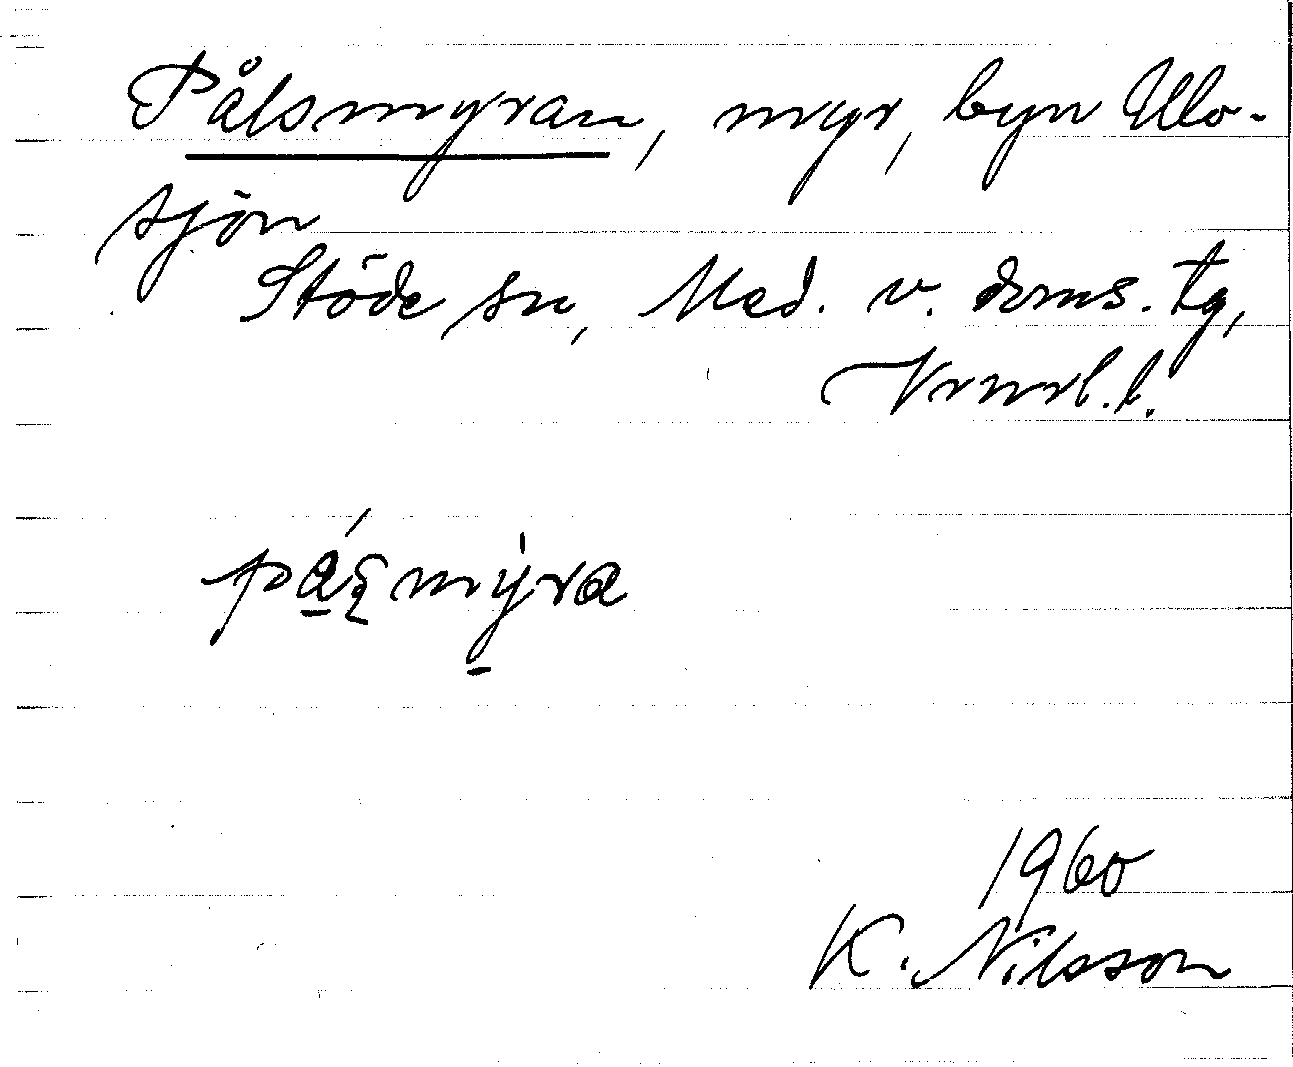 Pålsmyran, myr, byn Ulo-
sjön
Stöde sn, Med. v. doms. tg,
Vrnrl. l.
1960
K. Nilsson